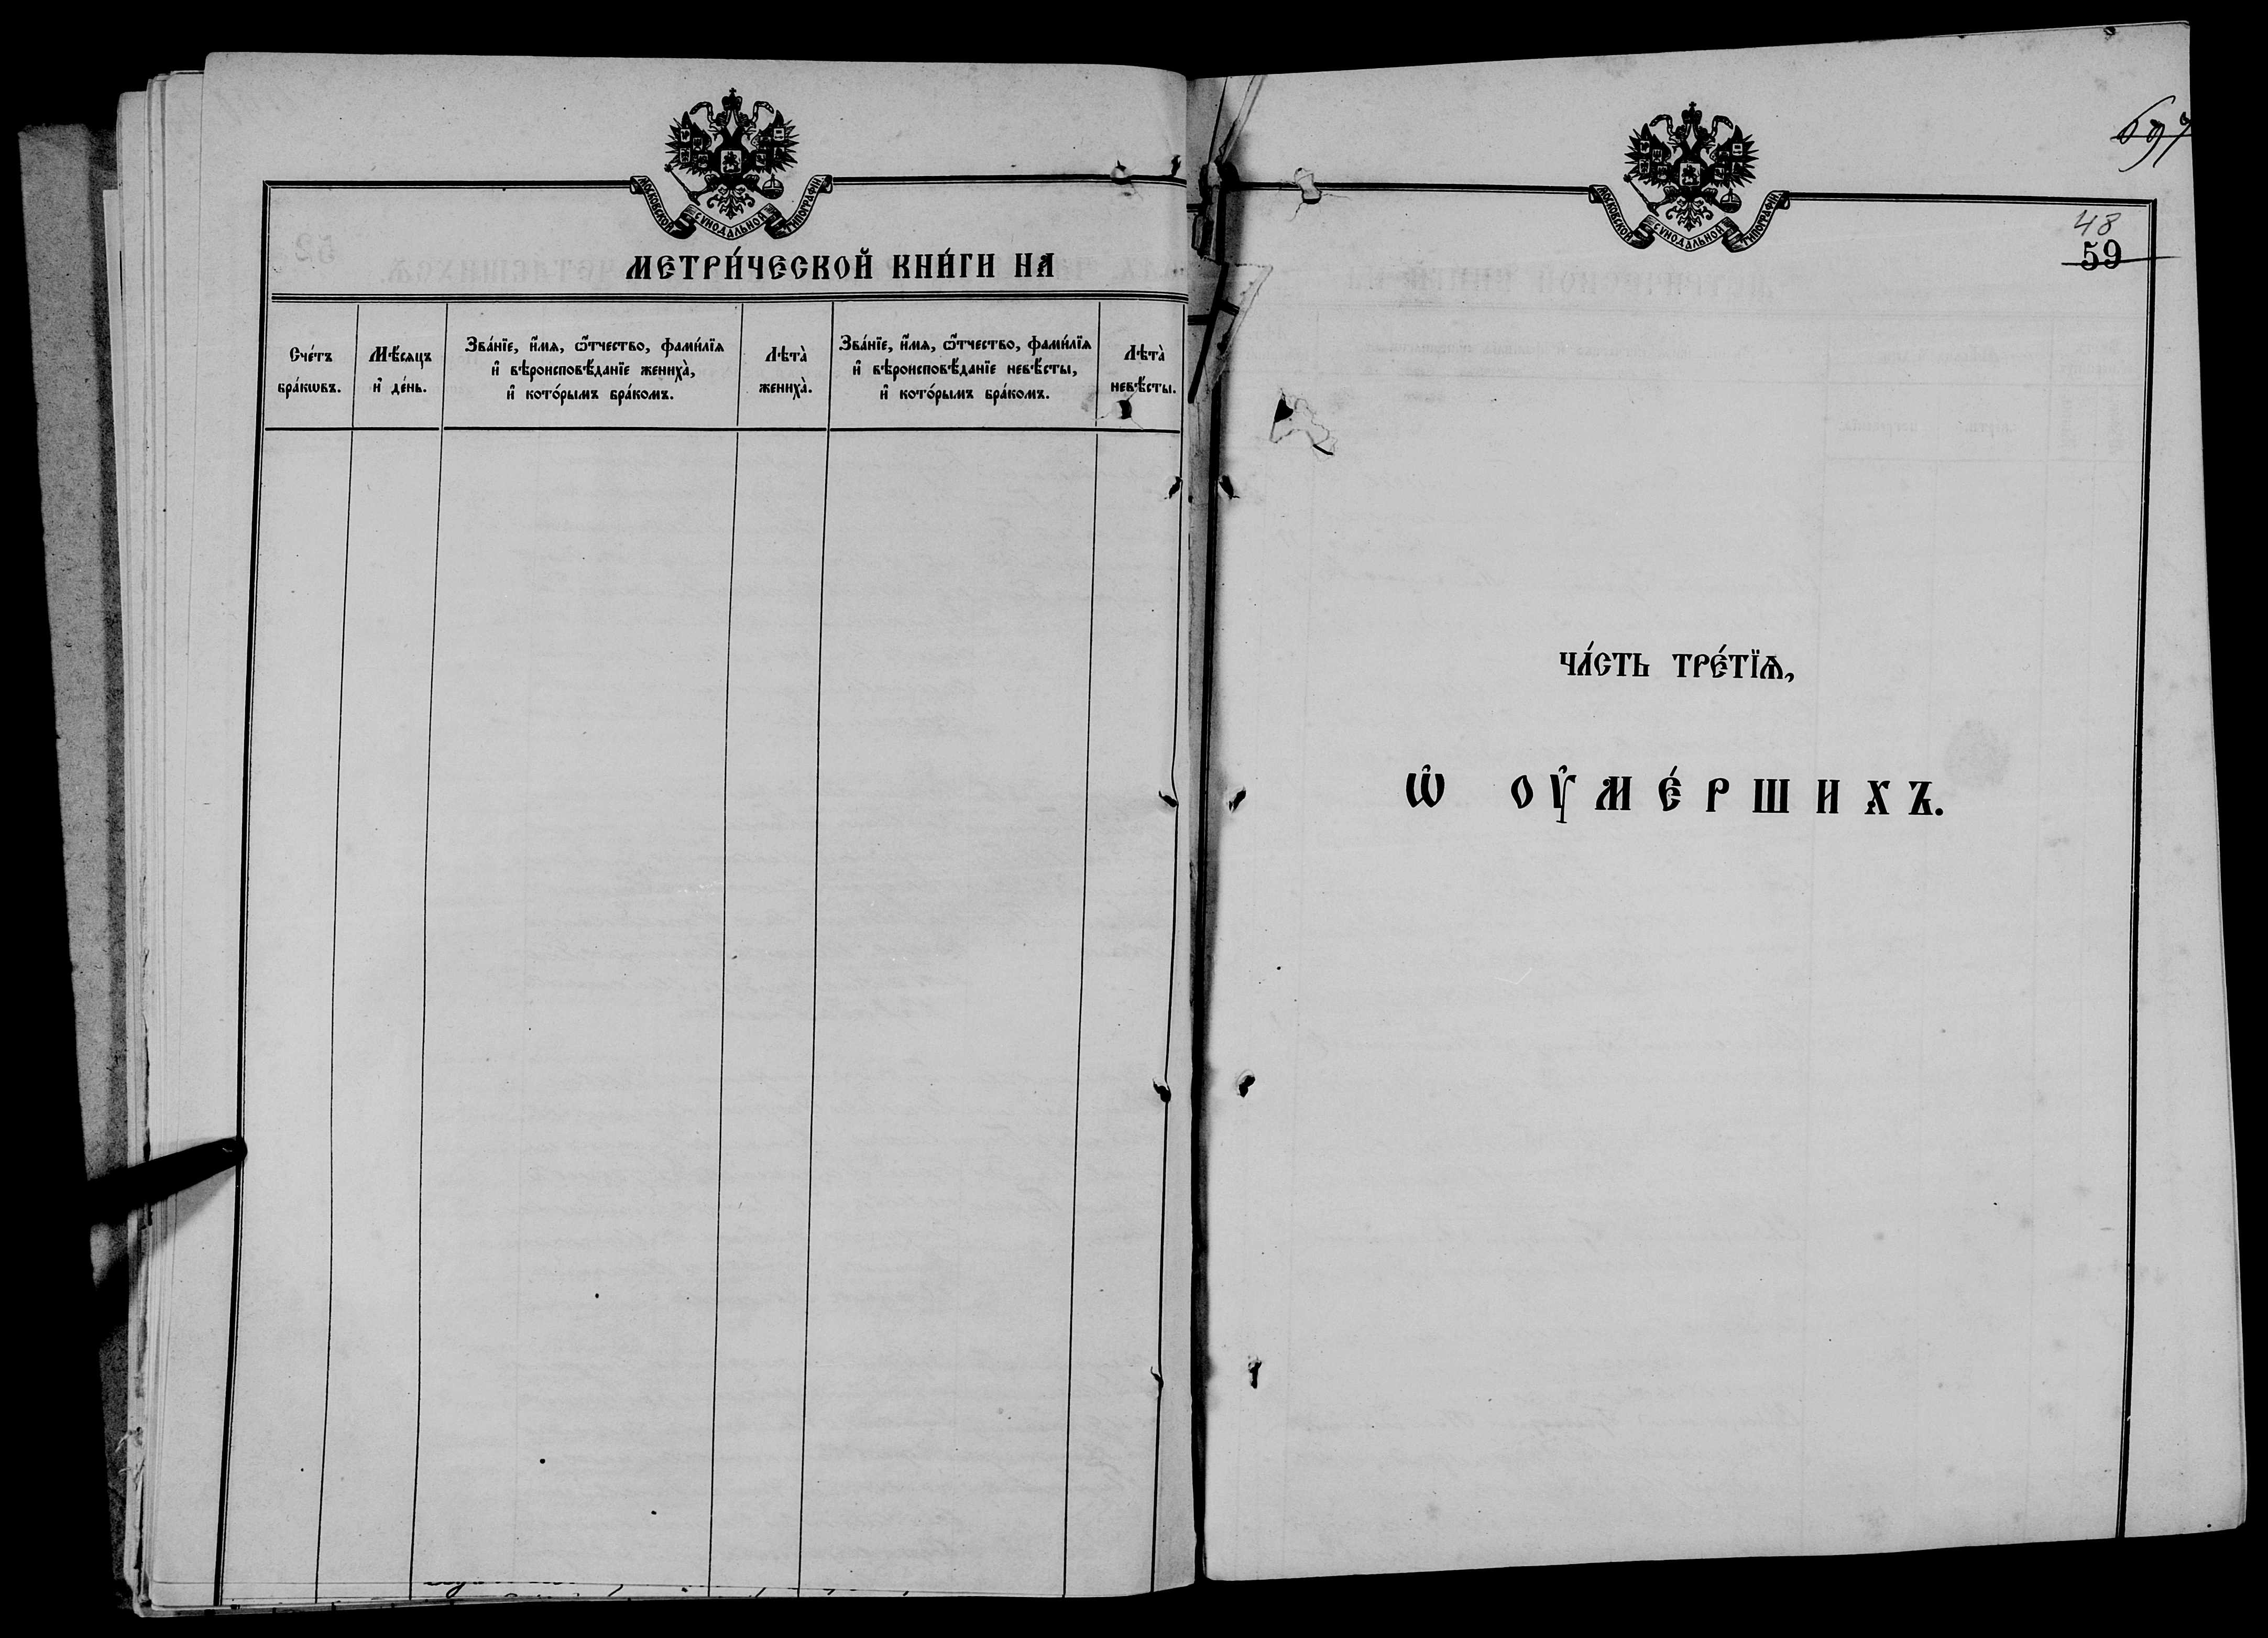 МОСКОВСКОЙ СѴНОДАЛЬНОЙ ТИПОГРАФІИ
МЕТРИ́ЧЕСКОЙ КНИ́ГИ НА
Сче́тъ
бра́кѡвъ.
Мѣ́сѧцъ
и҆ де́нь.
Зва́нїе, и҆́мѧ, ѻ҆́тчество, фами́лїѧ
и҆ вѣроисповѣ́данїе жениха̀,
и҆ кото́рымъ бра́комъ.
Лѣта̀
жениха̀.
Зва́нїе, и҆́мѧ, ѻ҆́тчество, фами́лїѧ
и҆ вѣроисповѣ́данїе невѣ́сты,
и҆ кото́рымъ бра́комъ.
Лѣта̀
невѣ́сты.
МОСКОВСКОЙ СѴНОДАЛЬНОЙ ТИПОГРАФІИ
597
48
59
ЧА́СТЬ ТРЕ́ТЇѦ,
Ѡ҆ ОУ҆МЕ́РШИХЪ.